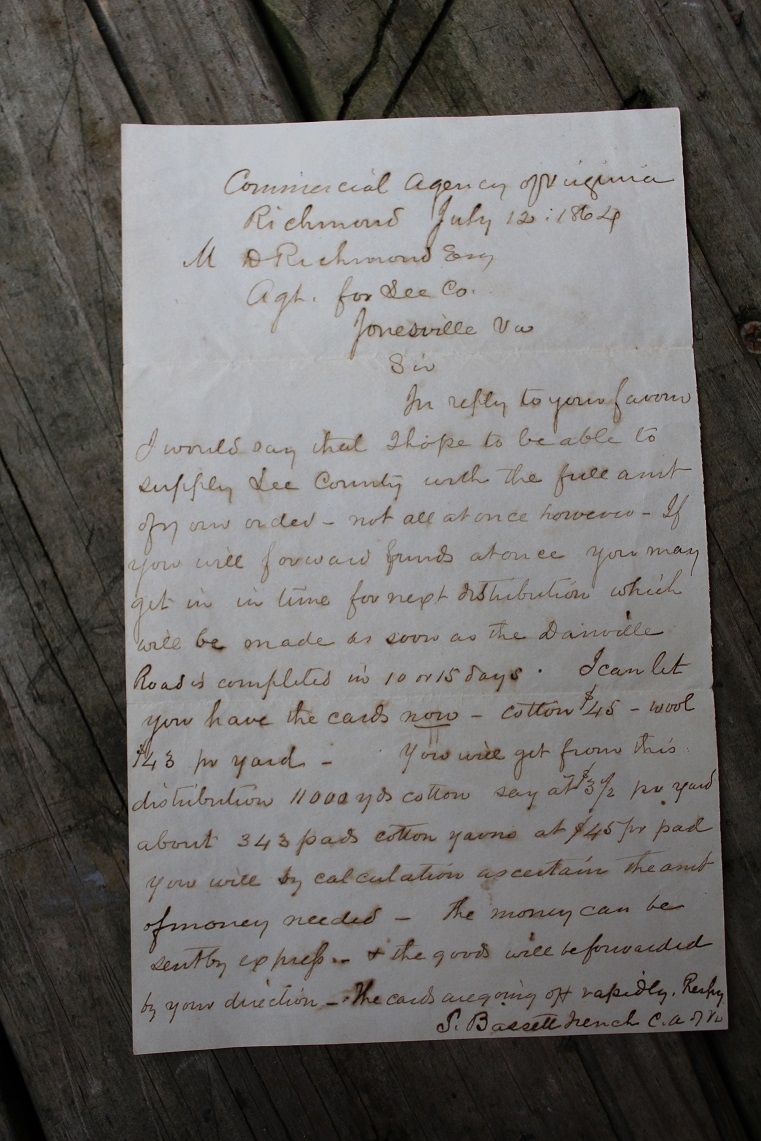 Commercial Agency of Virginia
Richmond July 12: 1864
M D Richmond Esq
Agt. for Lee Co.
Jonesville Va
Sir
In reply to your favour
I would say that I hope to be able to
supply Lee County with the full amt
of your order - not all at once however - If
you will forward funds at once you may
get in in time for next distribution which
will be made as soon as the Danville
Road is completed in 10 or 15 days. I can let
you have the cards now - cotton $45 - wool
$43 pr yard - You will get from this
distribution 11000 yds cotton say at $3 1/2 pr yard
about 343 pads cotton yarns at $45 pr pad
you will by calculation ascertain the amt
of money needed - The money can be
sent by express - & the goods will be forwarded
by your direction - The cards are going off rapidly. Resfy
S. Bassett French C. A. of Va